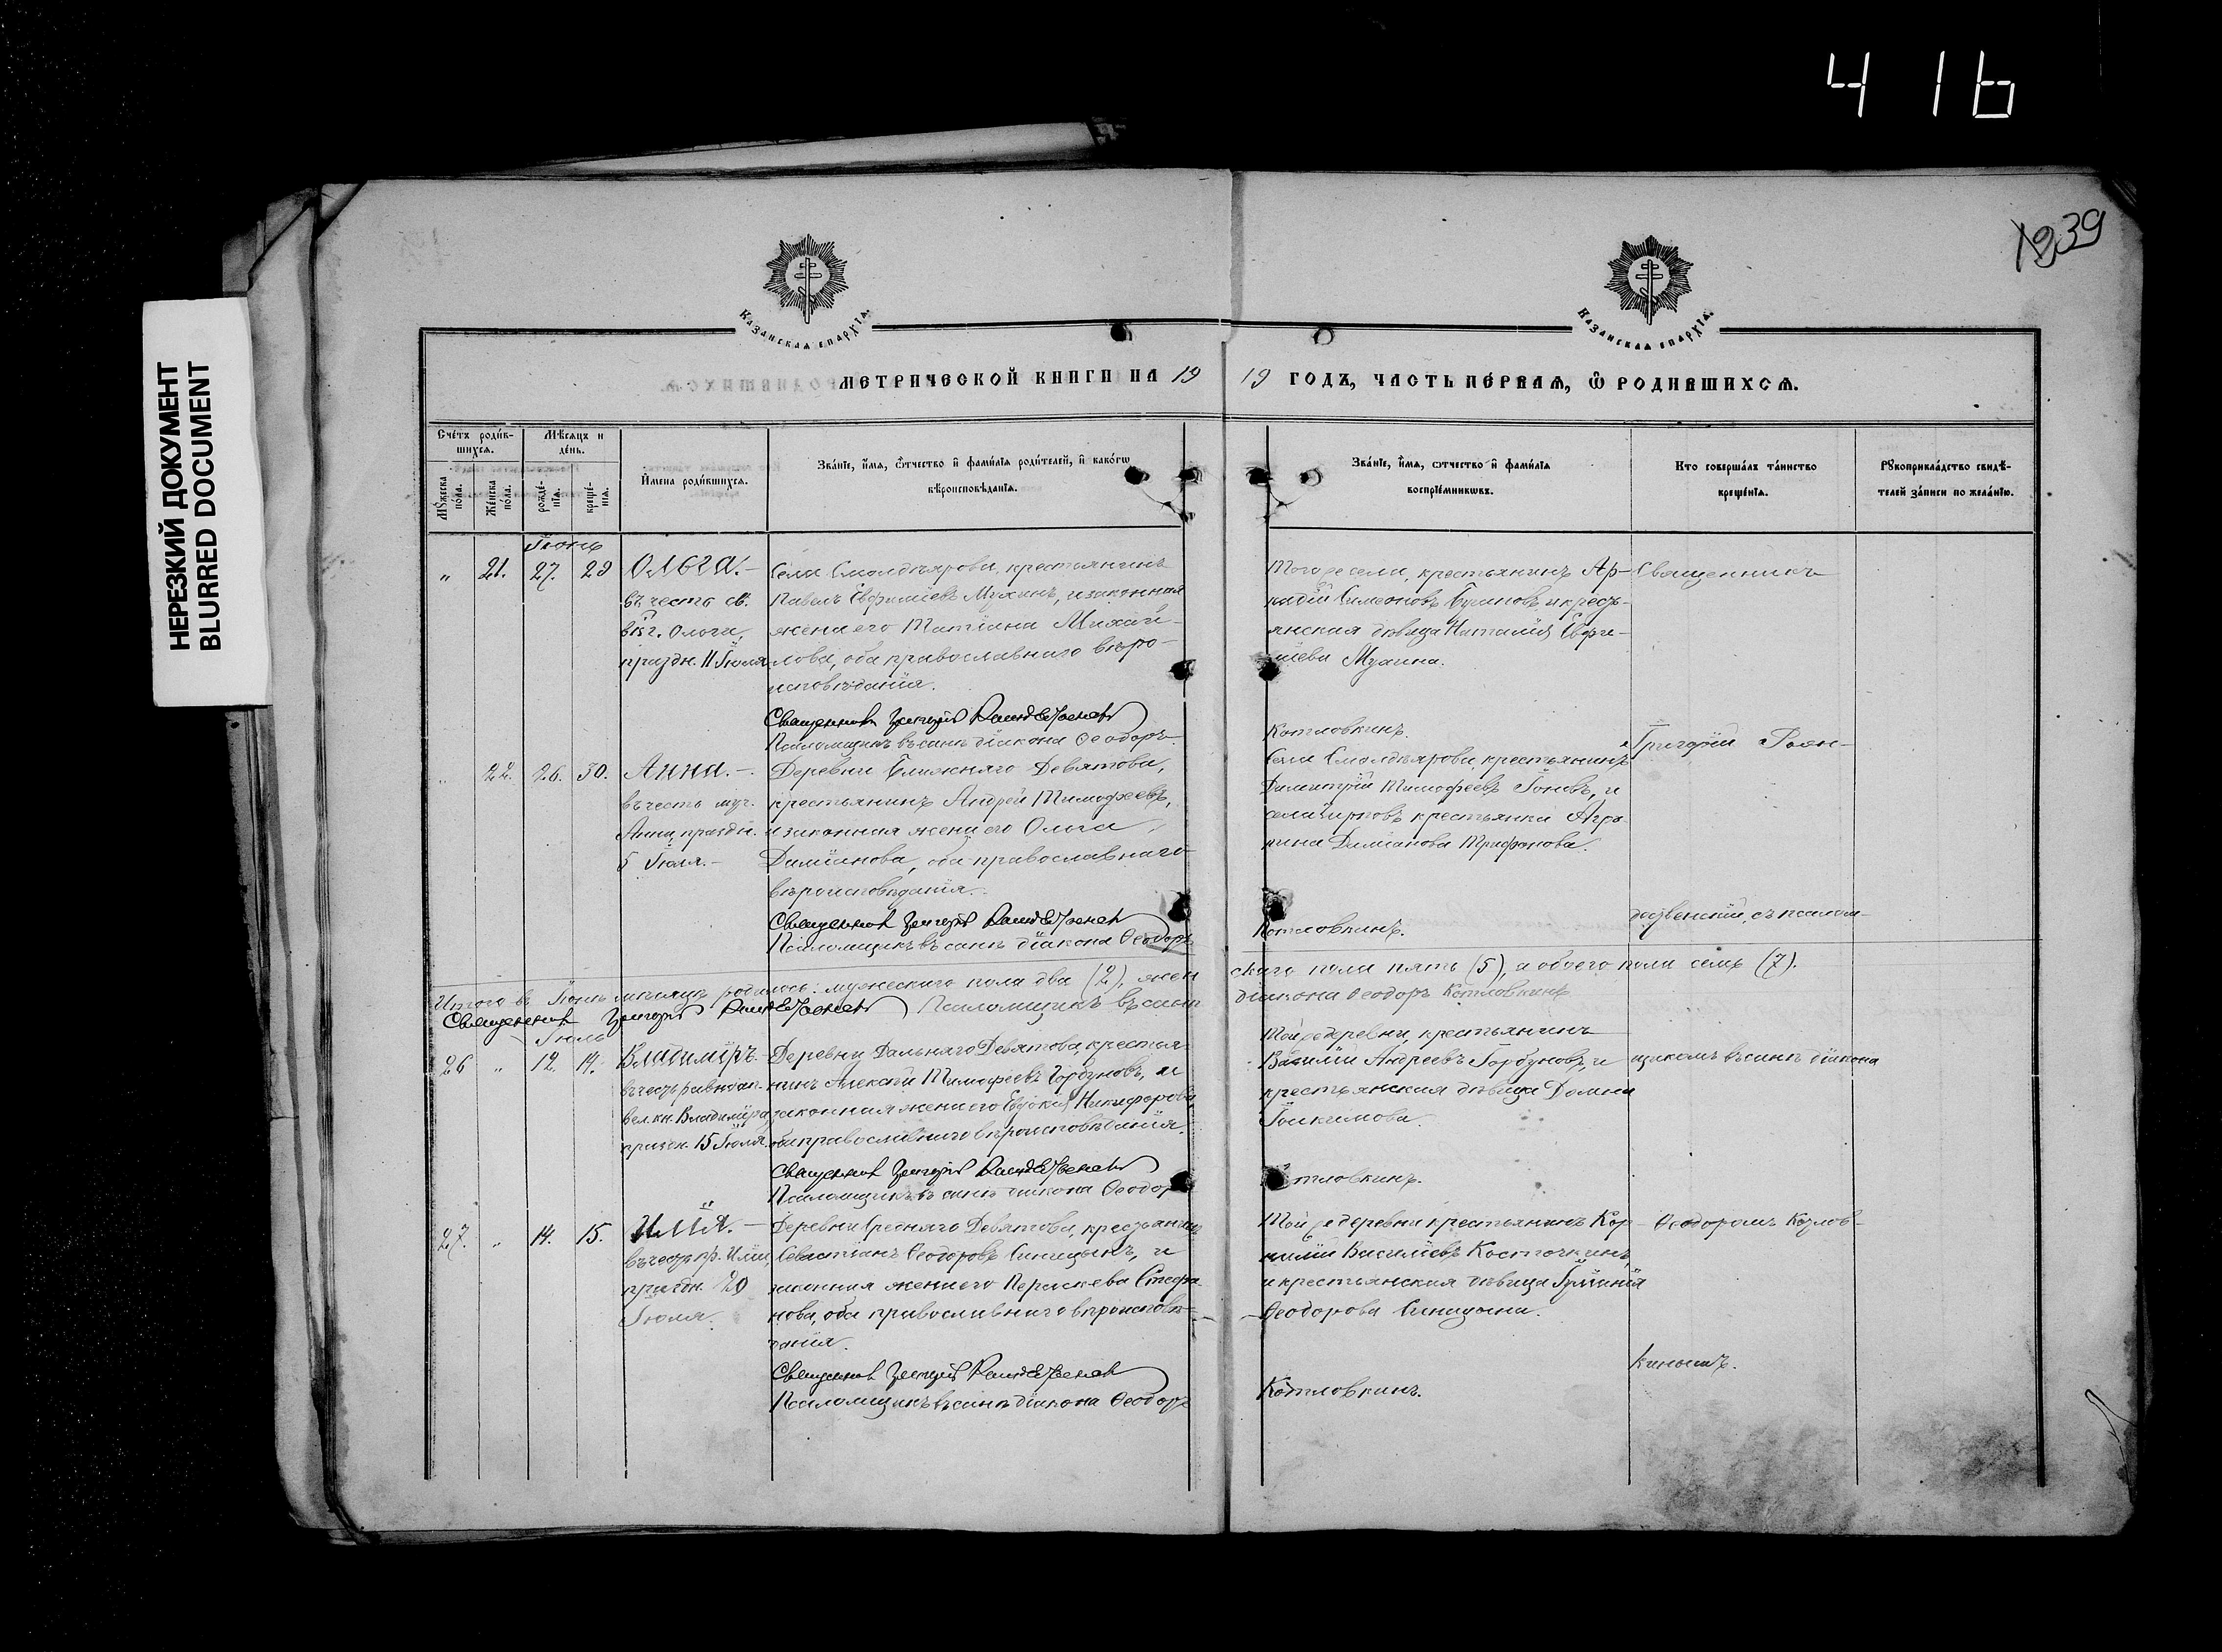 416
1939
НЕРЕЗКИЙ ДОКУМЕНТ
BLURRED DOCUMENT
Казанская епархїѧ.
Казанская епархїѧ.
МЕТРИЧЕСКОЙ КНИГИ НА 19
19 ГОДЪ, ЧАСТЬ ПЕРВАѦ, Ѿ РОДИВШИХСѦ.
Сче́тъ роди́в-
шихсѧ.
Мѣ́сяцъ и
де́нь.
Му́жеска
пола.
Же́нска
по́ла.
рожде́-
нїѧ.
креще́-
нїѧ.
И́мена роди́вшихсѧ.
Зва́нїе, и́мѧ, ѻ҆́тчество и҆ фами́лїѧ роди́телей, и҆ како́гѡ
вѣроисповѣ́данїѧ.
Зва́нїе, и́мѧ, ѻ҆тчество и҆ фами́лїѧ
воспрїе́мникѡвъ.
Кто соверша́лъ та́инство
креще́нїѧ.
Рꙋкоприкла́дство свидѣ́-
телей за́писи по жела́нїю.
Іюнь
" 21. 27. 29 Ольга.—
въ честь св.
Ольги,
праздн. 11 Іюля
Села Смолдеярова, крестьянинъ
Павелъ Евфиміевъ Мухинъ, и законная
жена его Татіана Михаи-
лова, оба православнаго вѣро-
исповѣданія.
Священникъ Григорій
Псаломщикъ въ санѣ діакона Ѳеодоръ
Того же села, крестьянинъ Ар-
кадій Симеоновъ и кресть-
янская дѣвица Наталія Евфи-
міева Мухина.
Котловкинъ.
Священникъ
" 22. 26. 30. Анна.—
въ честь муч.
Анны, праздн.
5 Іюля.—
Деревни Ближняго Девятова,
крестьянинъ Андрей Тимофеевъ,
и законная жена его Ольга
Даміанова, оба православнаго
вѣроисповѣданія.
Священникъ Григорій
Псаломщикъ въ санѣ діакона Ѳеодоръ
Села Смолдеярова, крестьянинъ
Димитрій Тимофеевъ и
села крестьянка Агра-
пина Даміанова Трифонова.
Котловкинъ.
Григорій Рож-
дественскій, съ псалом-
Итого въ Іюнѣ мѣсяцѣ родилось: мужескаго пола два (2), жен
скаго пола пять (5), а обоего пола семь (7).
Священникъ Григорій Псаломщикъ въ санѣ
діакона Ѳеодоръ Котловкинъ
Іюль
26 " 12. 14. Владиміръ.
въ честь равноап.
вел. кн. Владиміра,
праздн. 15 Іюля.
Деревни Дальняго Девятова, крестья
нинъ Алексій Тимофеевъ Горбуновъ, и
законная жена его Евдокія Никифорова,
оба православнаго вѣроисповѣданія.
Священникъ Григорій
Псаломщикъ въ санѣ діакона Ѳеодоръ
Той же деревни, крестьянинъ
Василій Андреевъ Горбуновъ, и
крестьянская дѣвица Домна
Іоакимова.
Котловкинъ.
щикомъ въ санѣ діакона
27. " 14. 15. Илія.—
въ честь пр. Иліи,
праздн. 20
Іюля.
Деревни Средняго Девятова, крестьянинъ
Севастіанъ Ѳеодоровъ Синицынъ, и
законная жена его Параскева Стефа-
нова, оба православнаго вѣроисповѣ-
данія.
Священникъ Григорій
Псаломщикъ въ санѣ діакона Ѳеодоръ
Той же деревни крестьянинъ Кор-
нилій Василіевъ Косточкинъ,
и крестьянская дѣвица
Ѳеодорова Синицына.
Котловкинъ.
Ѳеодоромъ Котлов-
кинымъ.